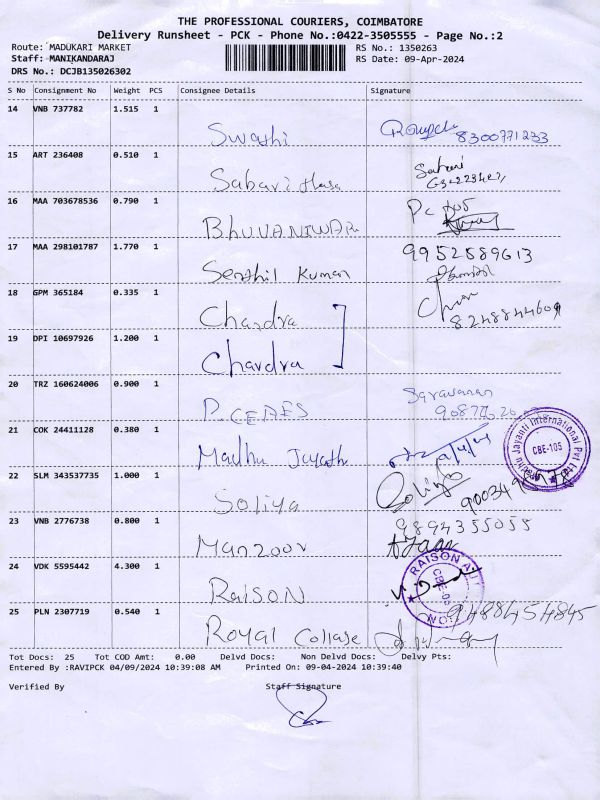 THE PROFESSIONAL COURIERS, COIMBATORE
Delivery Runsheet - PCK - Phone No.:0422-3505555 - Page No.:2
Route: MADUKARI MARKET RS No.: 1350263
Staff: MANIKANDARAJ RS Date: 09-Apr-2024
DRS No.: DCJB135026302
S No Consignment No Weight PCS Consignee Details Signature
14 VNB 737782 1.515 1
Swathi 8300771233
15 ART 236408 0.510 1
Sabari
16 MAA 703678536 0.790 1
BHUVANISWARI
17 MAA 298101787 1.770 1 9952889613
Senthil Kumar
18 GPM 365184 0.335 1
Chandra
19 DPI 10697926 1.200 1
Chandra
20 TRZ 160624006 0.900 1 Saravanan
21 COK 24411128 0.380 1
Madhu
22 SLM 343537735 1.000 1
Soliya
23 VNB 2776738 0.800 1 9894355055
Manzoor
24 VDK 5595442 4.300 1
RAISON
25 PLN 2307719 0.540 1 9488454845
Royal
Jayanti International Pvt Ltd
CBE-105
RAISON
Tot Docs: 25 Tot COD Amt: 0.00 Delvd Docs: Non Delvd Docs: Delvy Pts:
Entered By :RAVIPCK 04/09/2024 10:39:08 AM Printed On: 09-04-2024 10:39:40
Verified By Staff Signature